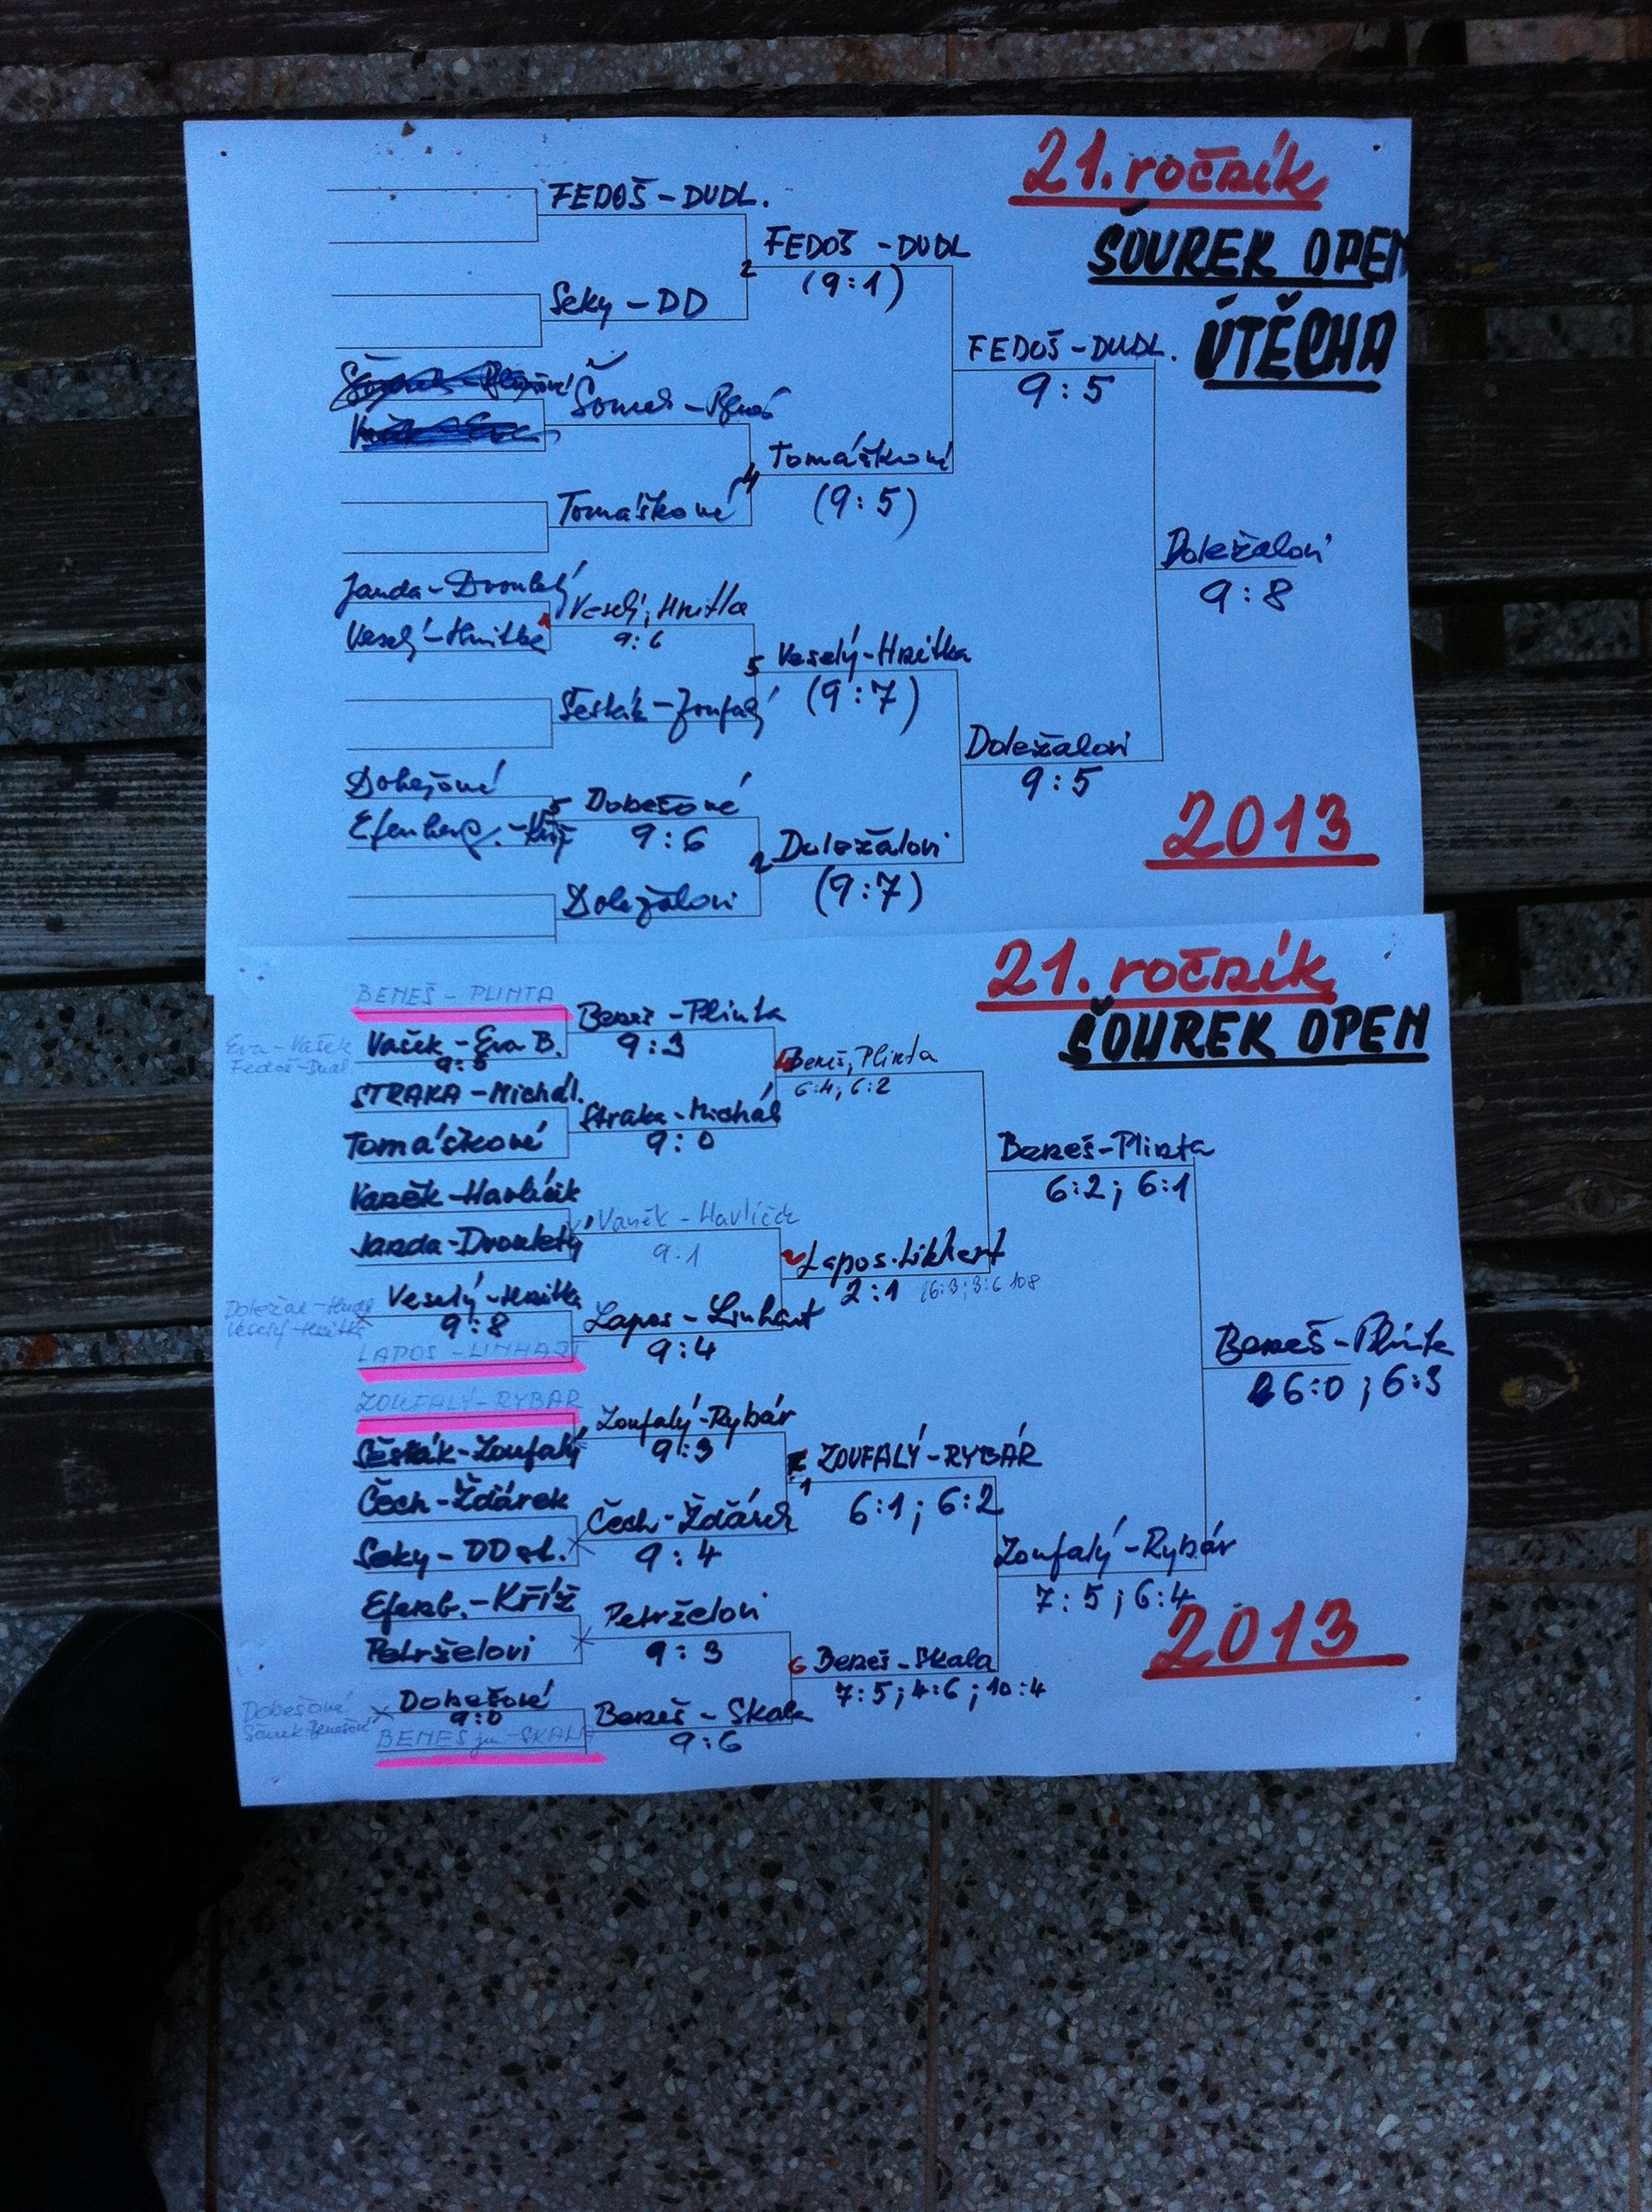 21. ročník
ŠOUREK OPEN
ÚTĚCHA
FEDOŠ - DUDL.
Seky - DD
Tomáškové
Janda - Dvouletý
Veselý - Hnitka
Veselý, Hnitka
9:6
Šesták - Zoufalý
Dobešové
9:6
Doležalovi
FEDOŠ - DUDL
(9:1)
Tomáškové
(9:5)
Veselý - Hnitka
(9:7)
Doležalovi
(9:7)
FEDOŠ - DUDL.
9:5
Doležalovi
9:5
Doležalovi
9:8
2013
21. ročník
ŠOUREK OPEN
BENEŠ - PLINTA
Eva - Vašek
Fedoš - Dudl.
Vašek - Eva B.
STRAKA - Michál.
Tomáškové
Vaněk - Havlíček
Janda - Dvouletý
Veselý - Hnitka
9:8
Veselý - Hnitka
LAPOS - LINHART
ZOUFALÝ - RYBÁR
Šesták - Zoufalý
Čech - Žďárek
Seky - DD st.
Efenb. - Kříž
Petrželovi
Dobešové
Dobešové
9:0
BENEŠ jun - SKALA
Beneš - Plinta
9:3
Straka - Michál
9:0
Vaněk - Havlíček
9:1
Lapos - Linhart
9:4
Zoufalý - Rybár
9:3
Čech - Žďárek
9:4
Petrželovi
9:3
Beneš - Skala
9:6
Beneš, Plinta
6:4; 6:2
Lapos - Linhart
2:1 (6:3; 3:6 10:8
ZOUFALÝ - RYBÁR
6:1; 6:2
Beneš - Skala
7:5; 4:6; 10:4
Beneš - Plinta
6:2; 6:1
Zoufalý - Rybár
7:5; 6:4
Beneš - Plinta
6:0; 6:3
2013